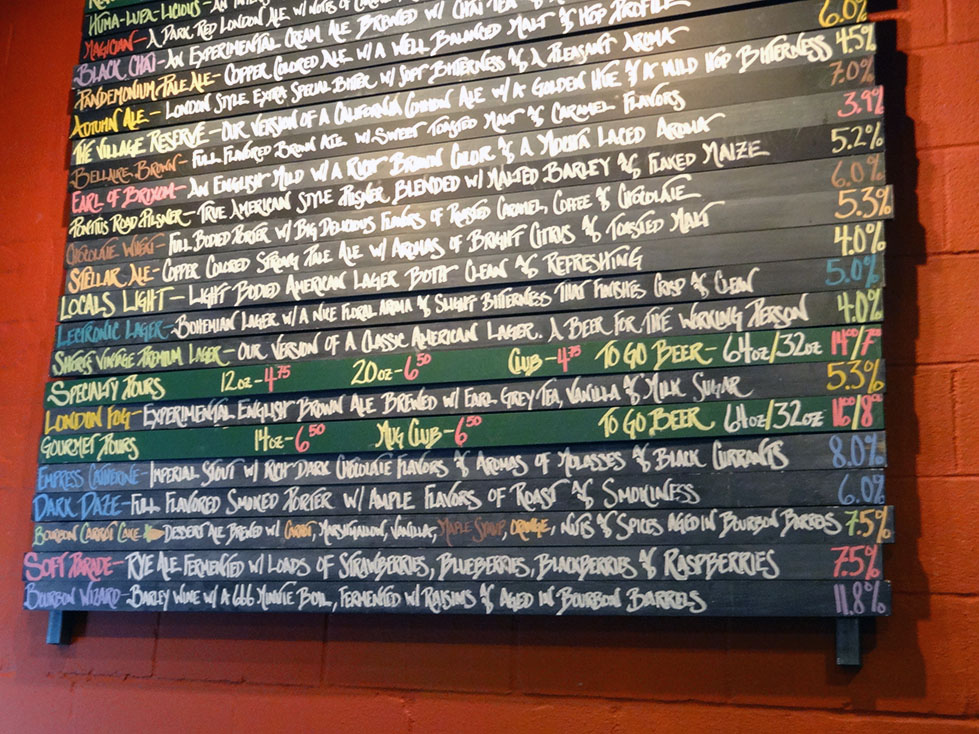 Huma-Lupa-Licious - An
Magician - A Dark Red London Ale w/ Notes of
Black Chai - An Experimental Cream Ale Brewed w/ Chai Tea &
Pandemonium Pale Ale - Copper Colored Ale w/ a Well Balanced Malt & Hop Profile 6.0%
Autumn Ale - London Style Extra Special Bitter w/ Soft Bitterness & a Pleasant Aroma 4.5%
The Village Reserve - Our Version of a California Common Ale w/ a Golden Hue & a Mild Hop Bitterness 7.0%
Bellaire Brown - Full Flavored Brown Ale w/ Sweet Toasted Malt & Caramel Flavors 3.9%
Earl of Brixum - An English Mild w/ a Rich Brown Color & a Mocha Laced Aroma 5.2%
Pontius Road Pilsner - True American Style Pilsner Blended w/ Malted Barley & Flaked Maize 6.0%
Chocolate Wheat - Full Bodied Porter w/ Big Delicious Flavors of Roasted Caramel, Coffee & Chocolate 5.3%
Stellar Ale - Copper Colored Strong Pale Ale w/ Aromas of Bright Citrus & Toasted Malt 4.0%
Locals Light - Light Bodied American Lager Both Clean & Refreshing 5.0%
Lectronic Lager - Bohemian Lager w/ a Nice Floral Aroma & Slight Bitterness That Finishes Crisp & Clean 4.0%
Shorts Vintage Premium Lager - Our Version of a Classic American Lager. A Beer For The Working Person
Specialty Pours 12oz - 4.75 20oz - 6.50 Club - 4.75 To Go Beer - 64oz/32oz 14.00/7
London Fog - Experimental English Brown Ale Brewed w/ Earl Grey Tea, Vanilla & Milk Sugar 5.3%
Gourmet Pours 14oz - 6.50 Mug Club - 6.50 To Go Beer 64oz/32oz 16/8
Empress Catherine - Imperial Stout w/ Rich Dark Chocolate Flavors & Aromas of Molasses & Black Currants 8.0%
Dark Daze - Full Flavored Smoked Porter w/ Ample Flavors of Roast & Smokiness 6.0%
Bourbon Carrot Cake Dessert Ale Brewed w/ Carrot, Marshmallow, Vanilla, Maple Syrup, Orange, Nuts & Spices Aged in Bourbon Barrels 7.5%
Soft Parade - Rye Ale Fermented w/ Loads of Strawberries, Blueberries, Blackberries & Raspberries 7.5%
Bourbon Wizard - Barley Wine w/ a 666 Minute Boil, Fermented w/ Raisins & Aged in Bourbon Barrels 11.8%